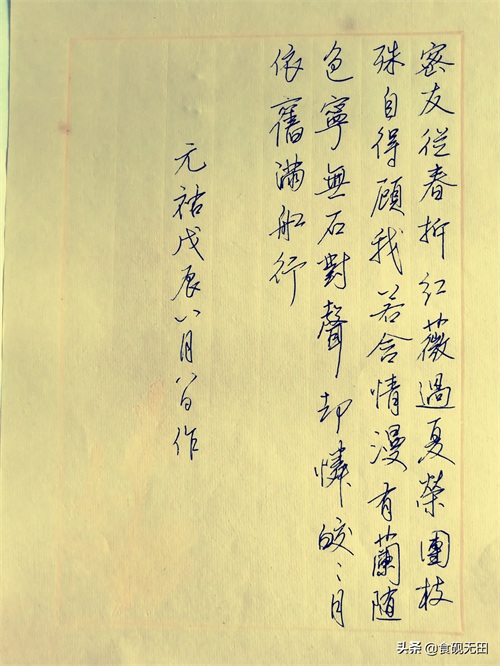 密友從春拆红薇過夏榮團枝
殊自得顧我若含情漫有蘭随
色寧無石對聲却憐皎〻月
依舊满船行
元祐戊辰八月八日作
头条 @食砚无田